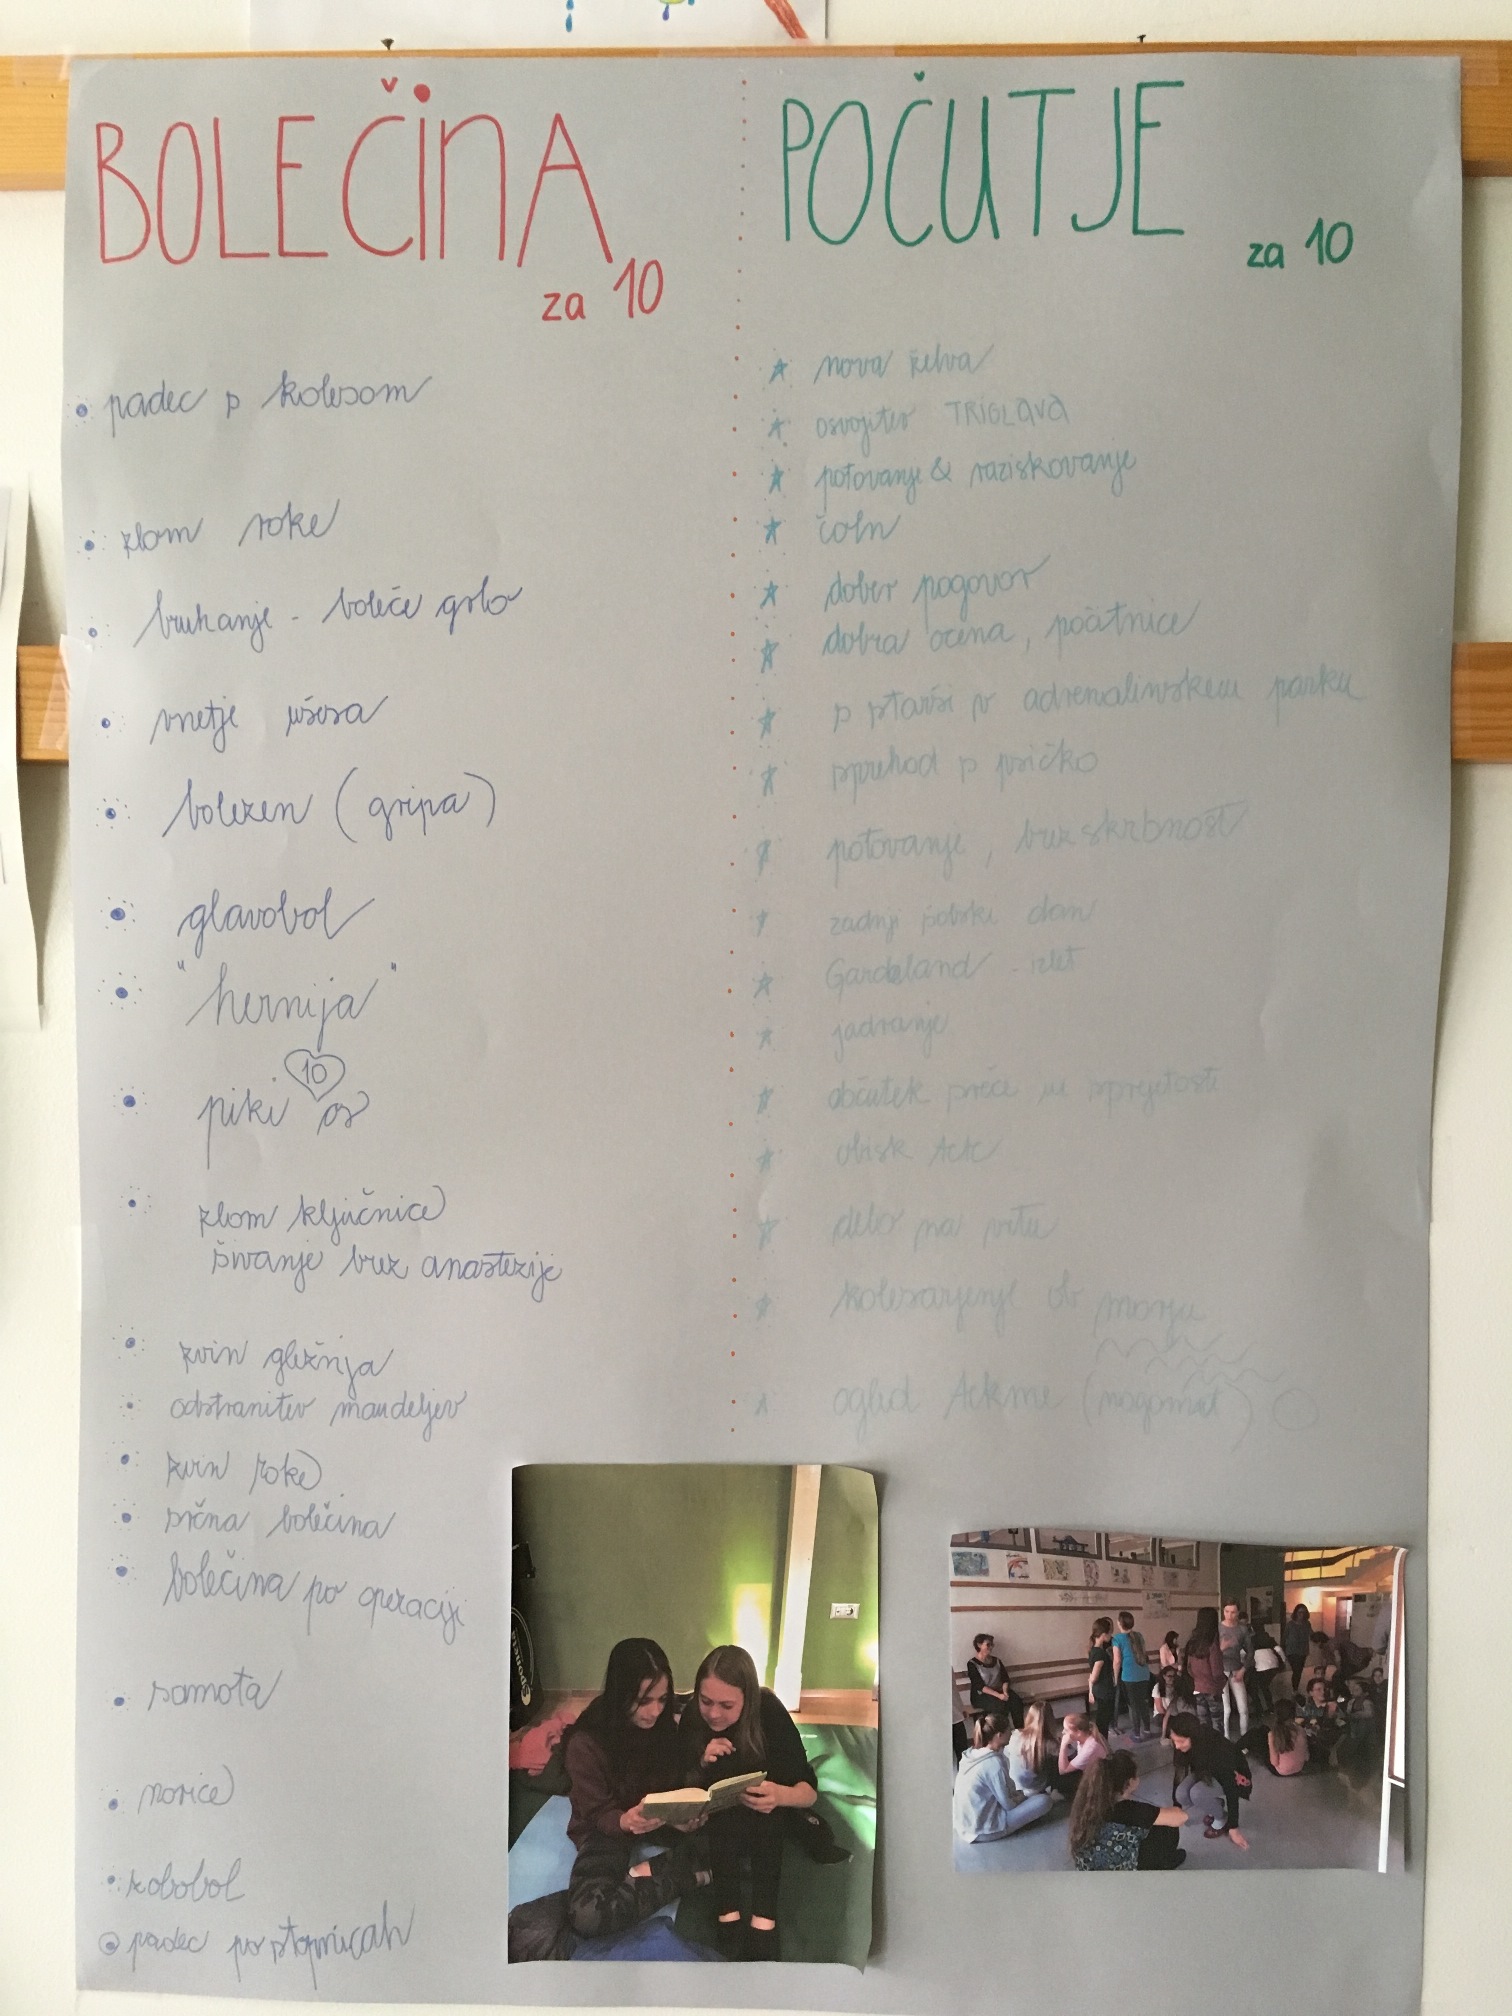 BOLEČINA
za 10
padec s kolesom
zlom roke
bruhanje - boleče grlo
vnetje ušesa
bolezen (gripa)
glavobol
"hernija"
10
piki os
zlom ključnice
šivanje brez anastezije
zvin gležnja
odstranitev mandeljev
zvin roke
srčna bolečina
bolečina po operaciji
samota
norice
zobobol
padec po stopnicah
POČUTJE
za 10
nova želva
osvojitev TRIGLAVA
potovanje & raziskovanje
čoln
dober pogovor
dobra ocena, počitnice
s starši v adrenalinskem parku
sprehod s psičko
potovanje, brezskrbnost
zadnji šolski dan
Gardaland - izlet
jadranje
občutek sreče in sprejetosti
obisk
delo na vrtu
kolesarjenje ob morju
ogled